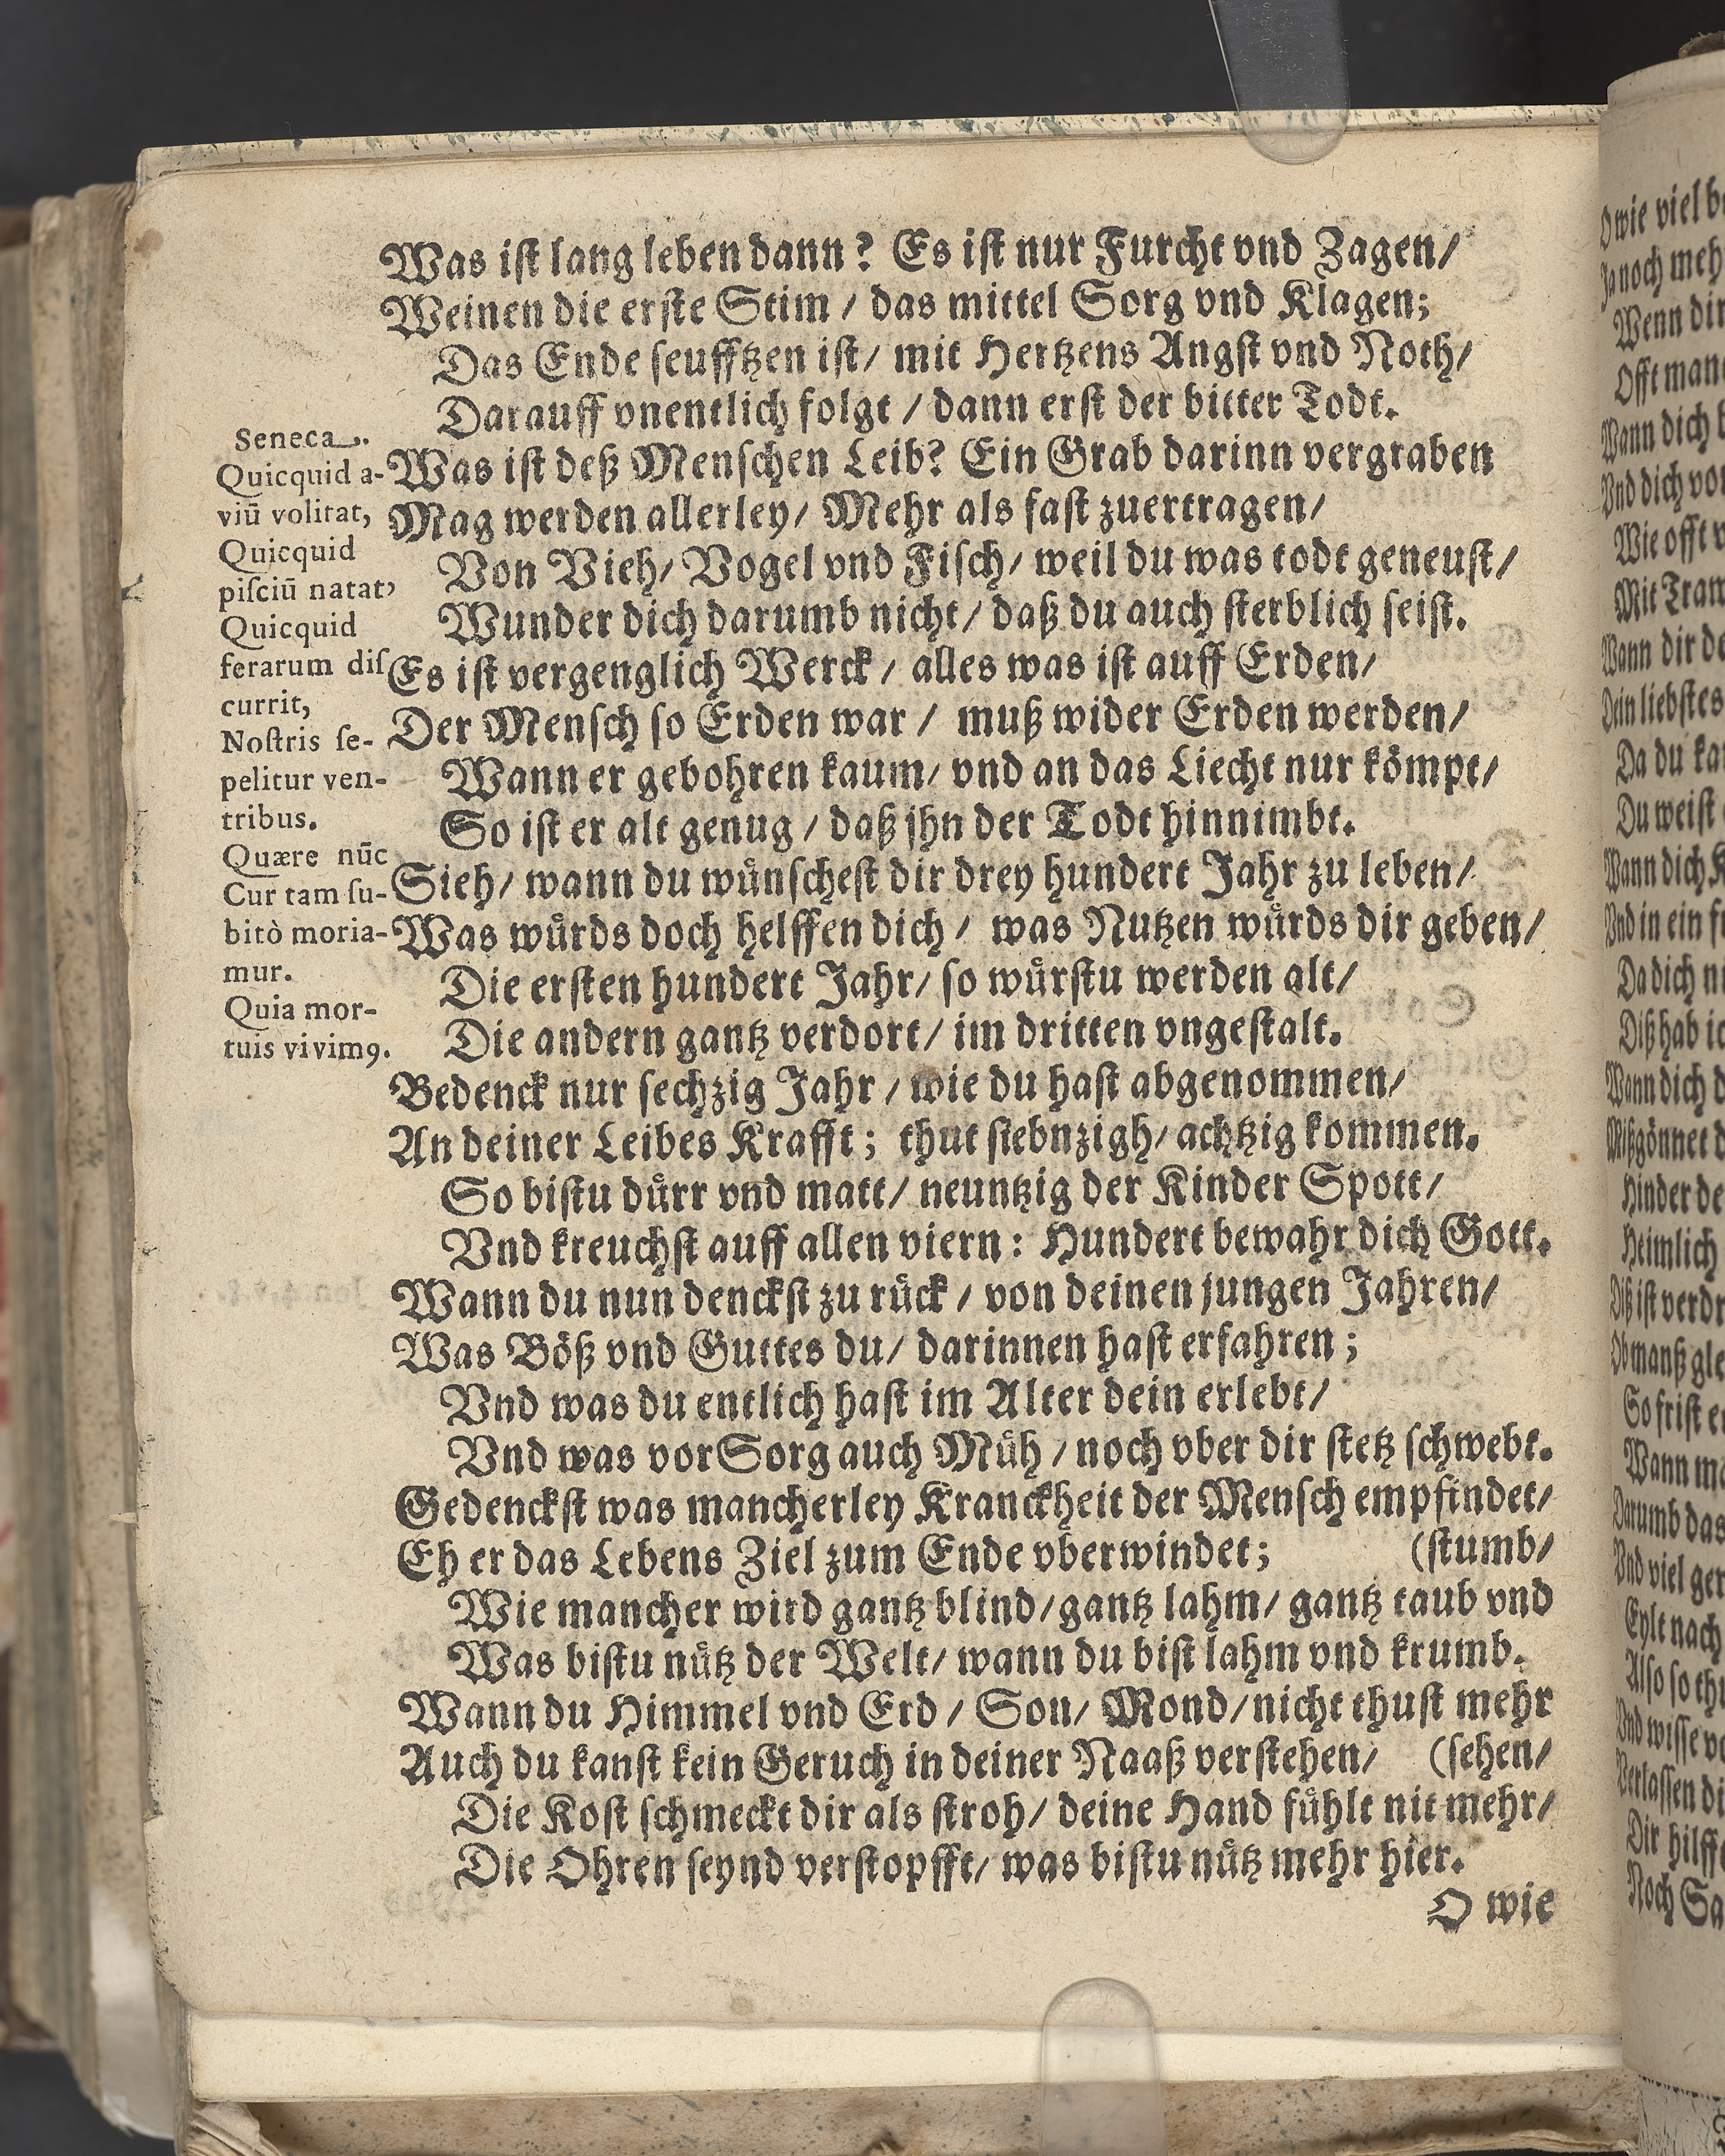 Was iſt lang leben dann? Es iſt nur Furcht vnd Zagen/
Weinen die erſte Stim / das mittel Sorg vnd Klagen;
Das Ende ſeufftzen iſt/ mit Hertzens Angſt vnd Noth/
Darauff vnentlich folgt / dann erſt der bitter Todt.
Was iſt deß Menſchen Leib? Ein Grab darinn vergraben
Mag werden allerley/ Mehr als faſt zuertragen/
Von Vieh/ Vogel vnd Fiſch/ weil du was todt geneuſt/
Wunder dich darumb nicht/ daß du auch ſterblich ſeiſt.
Es iſt vergenglich Werck / alles was iſt auff Erden/
Der Menſch ſo Erden war / muß wider Erden werden/
Wann er gebohren kaum/ vnd an das Liecht nur kömpt/
So iſt er alt genug / daß jhn der Todt hinnimbt.
Sieh/ wann du wünſcheſt dir drey hundert Jahr zu leben/
Was würds doch helffen dich / was Nutzen würds dir geben/
Die erſten hundert Jahr/ ſo würſtu werden alt/
Die andern gantz verdort/ im dritten vngeſtalt.
Bedenck nur ſechzig Jahr / wie du haſt abgenommen/
An deiner Leibes Krafft; thut ſiebnzigh/ achtzig kommen.
So biſtu dürr vnd matt/ neuntzig der Kinder Spott/
Vnd kreuchſt auff allen viern: Hundert bewahr dich Gott.
Wann du nun denckſt zu rück / von deinen jungen Jahren/
Was Böß vnd Guttes du/ darinnen haſt erfahren;
Vnd was du entlich haſt im Alter dein erlebt/
Vnd was vor Sorg auch Müh / noch vber dir ſtetz ſchwebt.
Gedenckſt was mancherley Kranckheit der Menſch empfindet/
Eh er das Lebens Ziel zum Ende vberwindet; (ſtumb/
Wie mancher wird gantz blind/gantz lahm/ gantz taub vnd
Was biſtu nütz der Welt/ wann du biſt lahm vnd krumb.
Wann du Himmel vnd Erd / Son/ Mond/nicht thuſt mehr
Auch du kanſt kein Geruch in deiner Naaß verſtehen/ (ſehen/
Die Koſt ſchmeckt dir als ſtroh/ deine Hand fühlt nit mehr/
Die Ohren ſeynd verſtopfft/ was biſtu nütz mehr hier.
O wie
Seneca.
Quicquid a-
viū volitat,
Quicquid
piſciū natat,
Quicquid
ferarum diſ
currit,
Noſtris ſe-
pelitur ven-
tribus.
Quære nūc
Cur tam ſu-
bitò moria-
mur.
Quia mor-
tuis vivimꝯ.
O wie viel
Ja noch meh
Wenn dir
Offt man
Wann dich
Vnd dich vo
Wie offt
Mit
Wann dir
Dein liebſtes
Da du
Du weiſt
Wann dich
Vnd in ein
Da dich
Diß hab
Wann dich
Mißgönnet
Hinder de
Heimlich
Diß iſt verd
Ob manß gle
So friſt
Wann
Darumb das
Vnd viel
Eylt nach
Alſo ſo
Vnd wiſſe
Verlaſſen
Dir hilff
Noch